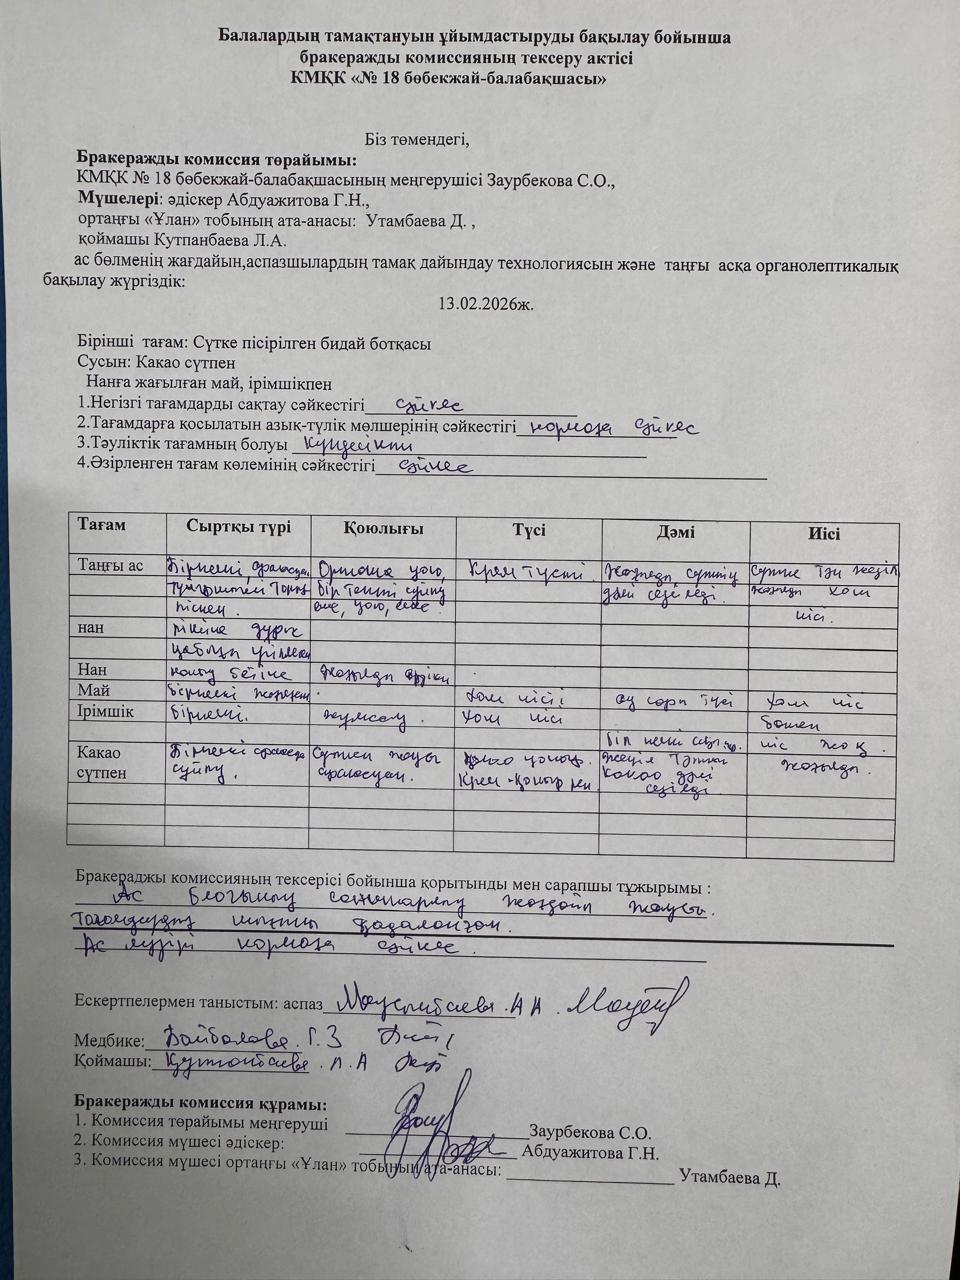 Балалардың тамақтануын ұйымдастыруды бақылау бойынша
бракеражды комиссияның тексеру актісі
КМҚК «№ 18 бөбекжай-балабақшасы»
Біз төмендегі,
Бракеражды комиссия төрайымы:
КМҚК № 18 бөбекжай-балабақшасының меңгерушісі Заурбекова С.О.,
Мүшелері: әдіскер Абдуажитова Г.Н.,
ортаңғы «Ұлан» тобының ата-анасы: Утамбаева Д. ,
қоймашы Кутпанбаева Л.А.
ас бөлменің жағдайын,аспазшылардың тамақ дайындау технологиясын және таңғы асқа органолептикалық
бақылау жүргіздік:
13.02.2026ж.
Бірінші тағам: Сүтке пісірілген бидай ботқасы
Сусын: Какао сүтпен
Нанға жағылған май, ірімшікпен
1.Негізгі тағамдарды сақтау сәйкестігі сәйкес
2.Тағамдарға қосылатын азық-түлік мөлшерінің сәйкестігі нормаға сәйкес
3.Тәуліктік тағамның болуы күнделікті
4.Әзірленген тағам көлемінің сәйкестігі сәйкес
Тағам Сыртқы түрі Қоюлығы Түсі Дәмі Иісі
Таңғы ас Біркелкі, Орташа қою, Крем түсті. сүттің сүтке тән
біртекті сұйық дәмі сезіледі. хош
піскен. емес, қою емес. иісі.
нан дұрыс
Нан
Май біркелкі хош иісі хош иіс
Ірімшік біркелкі. жұмсақ. хош иіс бөтен
иіс жоқ.
Какао Біркелкі Сүтпен жақсы қоңыр. Жеңіл тәтті
сүтпен сұйық. араласқан. Крем-қоңыр какао дәмі жағымды.
сезіледі
Бракераджы комиссияның тексерісі бойынша қорытынды мен сарапшы тұжырымы :
Ас блогының санитарлық жағдайы жақсы.
Тағамдардың қадағаланған.
Ас мәзірі нормаға сәйкес.
Ескертпелермен таныстым: аспаз А А.
Медбике: Байбалаева. Г.З
Қоймашы: Кутпанбаева. Л.А
Бракеражды комиссия құрамы:
1. Комиссия төрайымы меңгеруші Заурбекова С.О.
2. Комиссия мүшесі әдіскер: Абдуажитова Г.Н.
3. Комиссия мүшесі ортаңғы «Ұлан» тобының ата-анасы: Утамбаева Д.